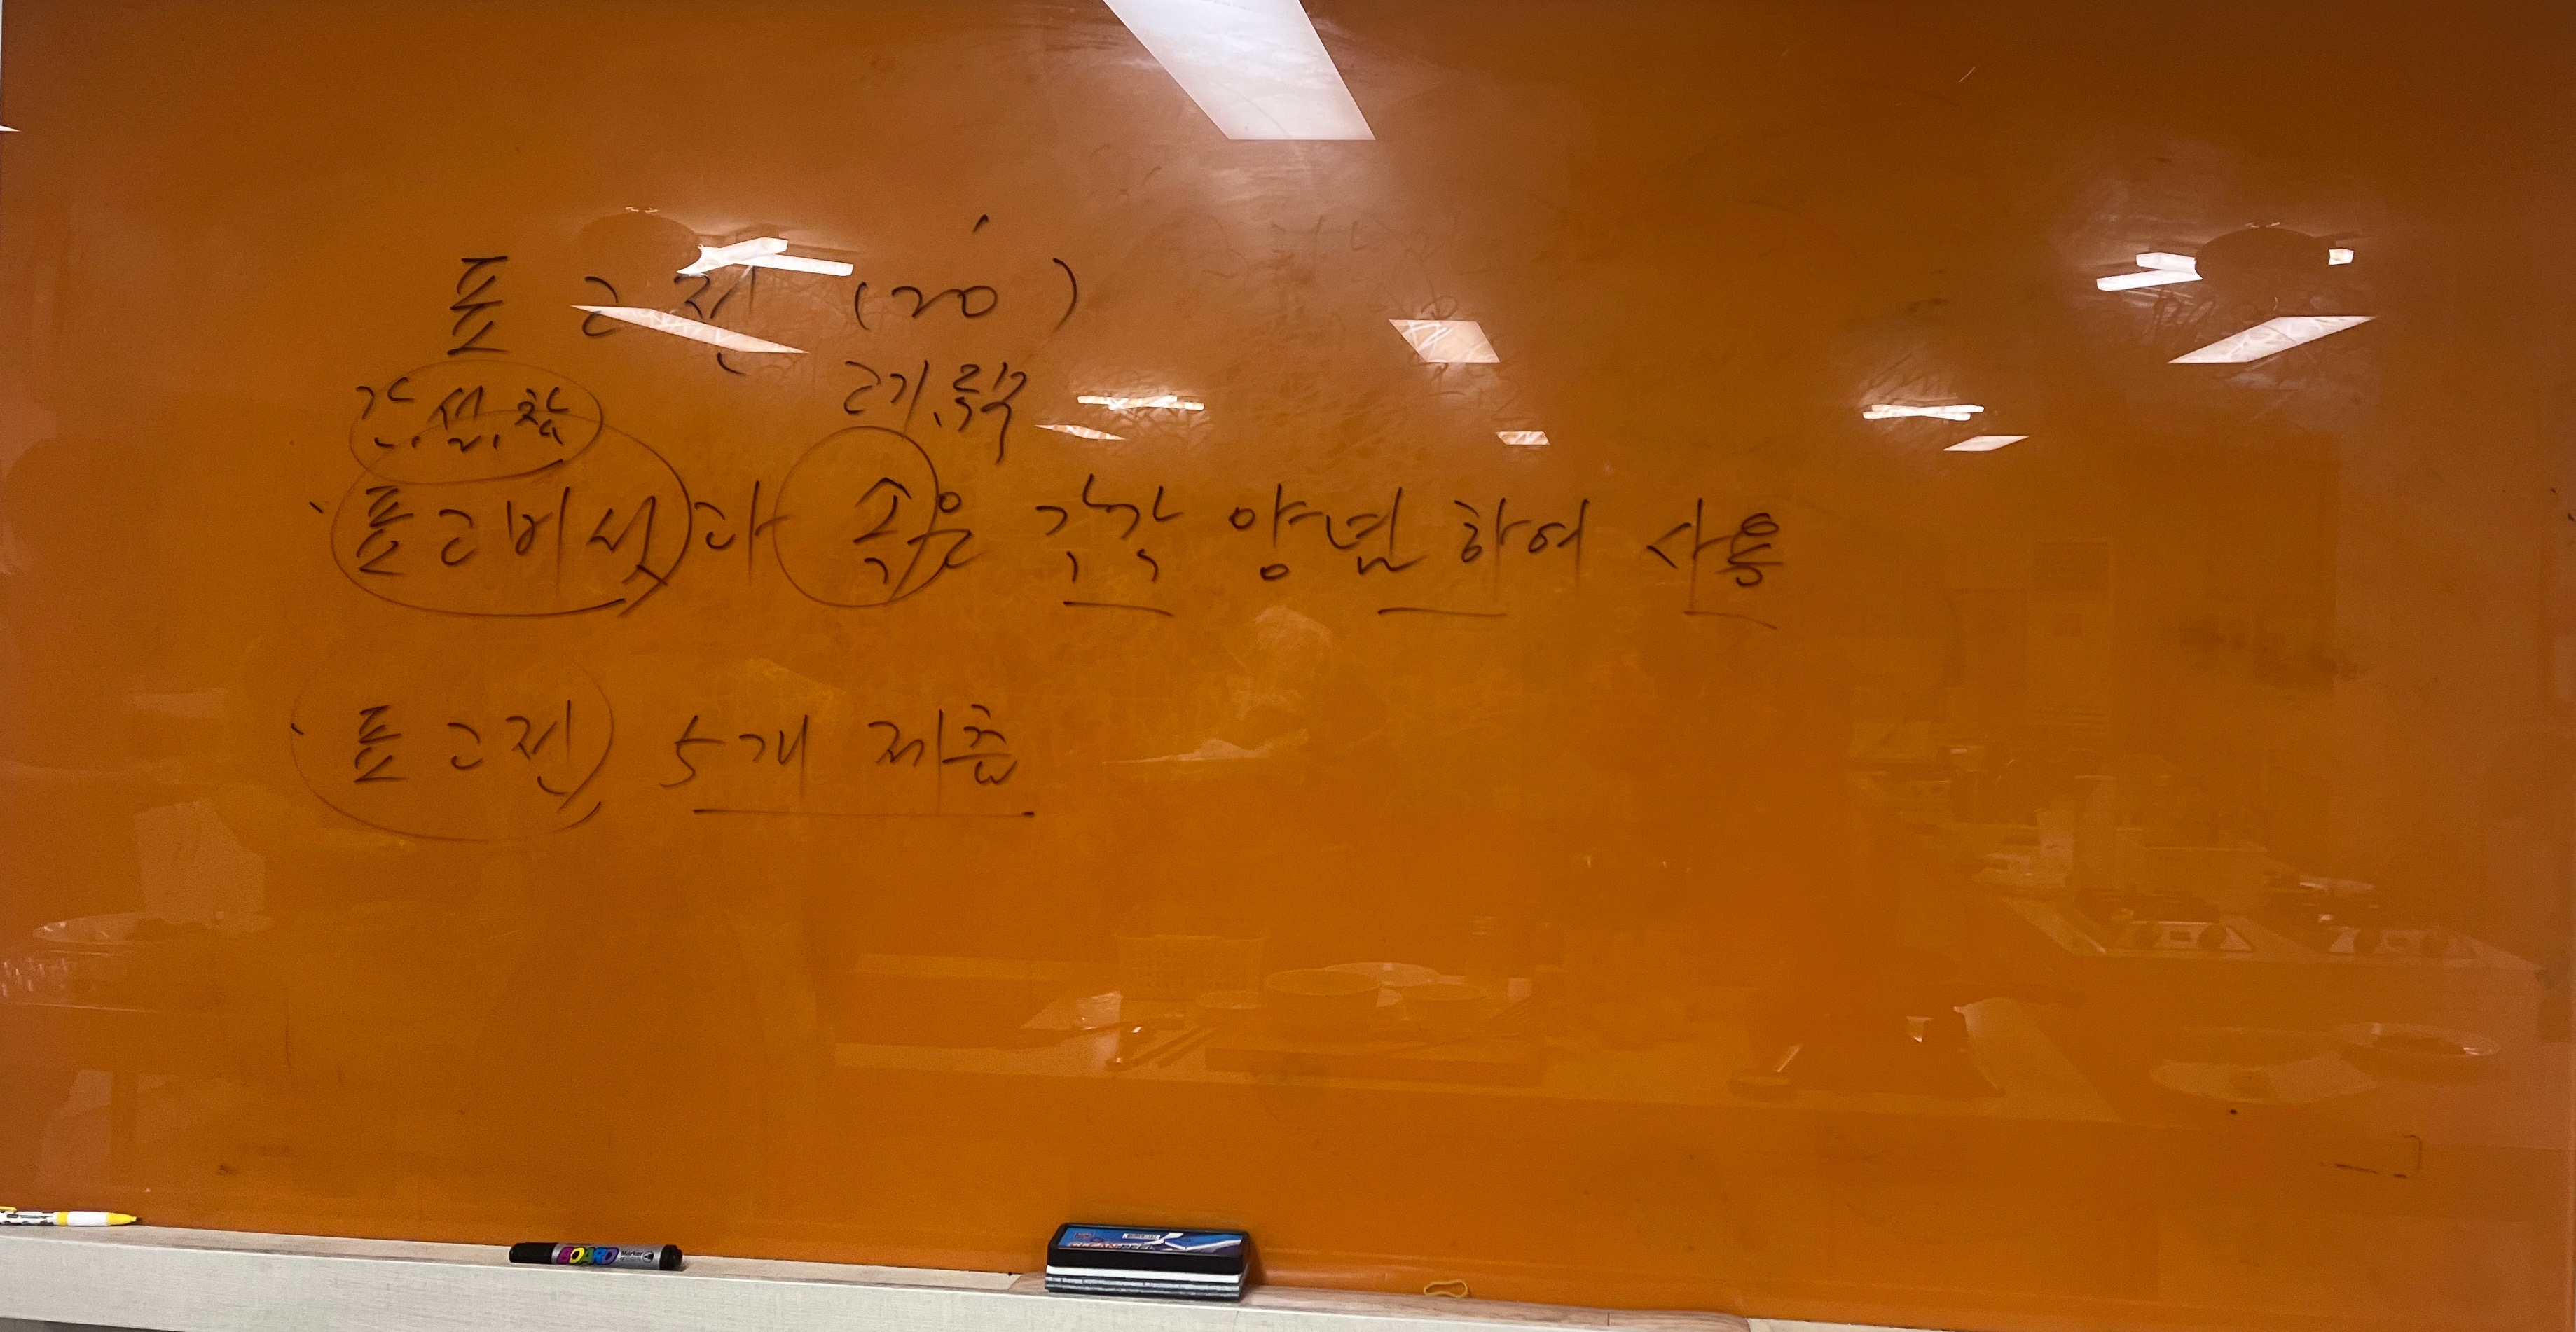 표고전 (20')
간.설.참 고기.두부
· 표고버섯과 속은 각각 양념하여 사용
· 표고전 5개 제출
BOARD Marker